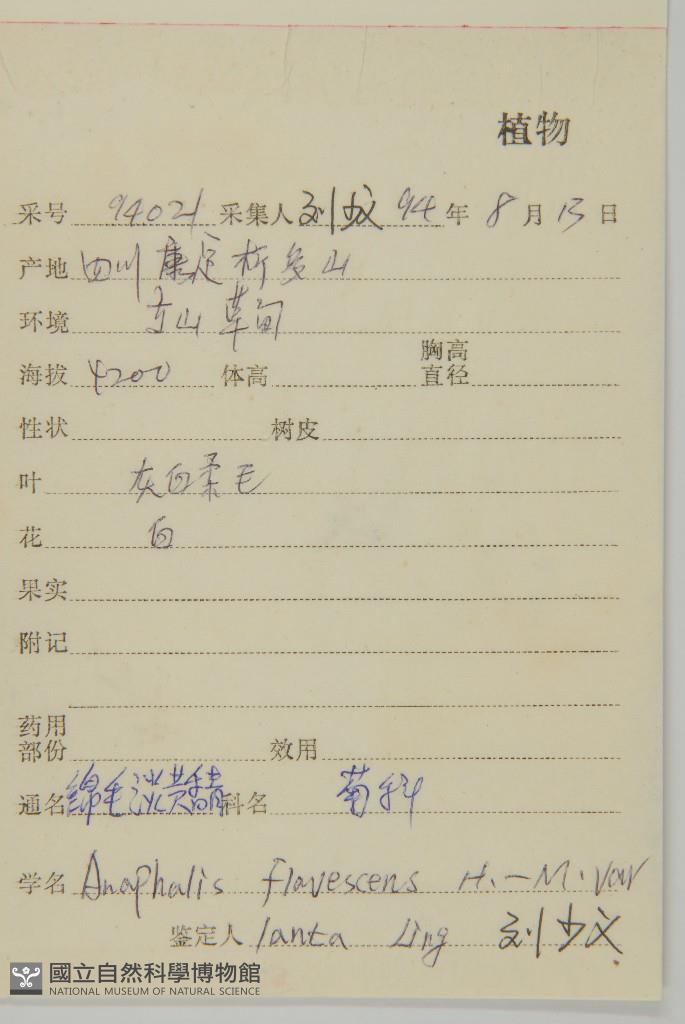 植物
采号 94021 采集人 刘少文 94年 8月 13日
产地 四川 康定 折多山
环境 高山 草甸
海拔 4200 体高 胸高直径
性状 树皮
叶 灰白柔毛
花 白
果实
附记
药用部份 效用
通名 绵毛淡黄香青 科名 菊科
学名 Anaphalis flavescens H.-M. var
鉴定人 lanata Ling 刘少文
國立自然科學博物館
NATIONAL MUSEUM OF NATURAL SCIENCE